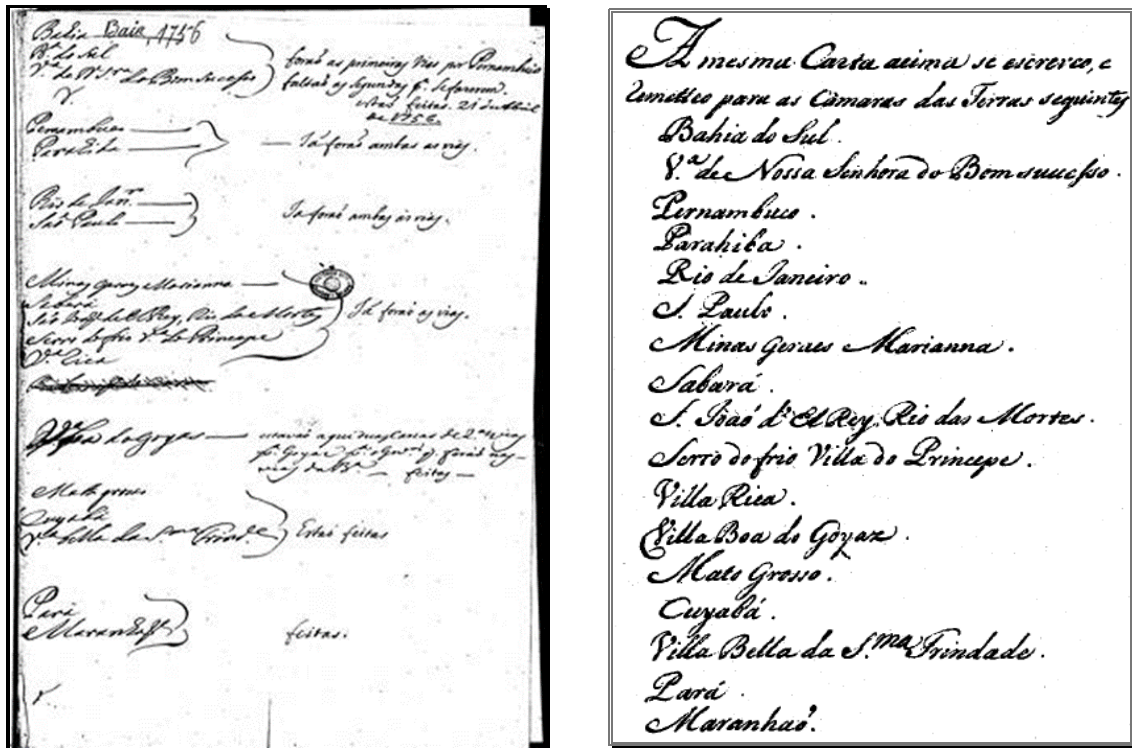 Bahia Baia, 1756
B.ª do Sul
V.ª de N. Sr.ª do Bom Sucesso
foraõ as primeiras vias por Pernambuco
faltaõ as segundas p.
estaõ feitas. 21 de Abril
de 1756.
Pernambuco
Paraiba
Já foraõ ambas as vias.
Rio de Janr.º
Saõ Paulo
Ja foraõ ambas as vias.
Minas Geraes Marianna
Sabará
Saõ Joaõ de El Rey, Rio das Mortes
Serro do frio V.ª do Principe
V.ª Rica
Já foraõ as vias.
do Goyas
estavaõ aqui duas Cartas de 2.as vias
p.ª Goyaz
feitas
Mato groso
Cuyabá
V.ª bella da S.ma Trind.e
Estaõ feitas
Pará
Maranhaõ
feitas.
A mesma Carta acima se escreveo, e
remetteo para as Camaras das Terras seguintes
Bahia do Sul.
V.ª de Nossa Senhora do Bom successo.
Pernambuco.
Parahiba.
Rio de Janeiro.
S. Paulo.
Minas Geraes Marianna.
Sabará.
S. Joaõ d'El Rey, Rio das Mortes.
Serro do frio Villa do Princepe.
Villa Rica.
Villa Boa do Goyaz.
Mato Grosso.
Cuyabá.
Villa Bella da S.ma Trindade.
Pará.
Maranhaõ.